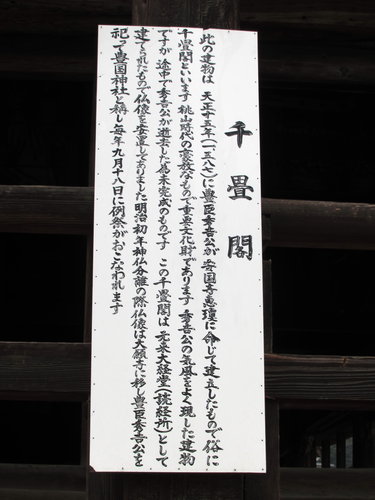 千畳閣
此の建物は 天正十五年(一、五八七)に豊臣秀吉公が安国寺恵瓊に命じて建立したもので俗に
千畳閣といいます 桃山時代の豪族なもので重要文化財であります 秀吉公の気風をよく現した建物
ですが 途中で秀吉公が逝去した為未完成のものです この千畳閣は 元来大経堂(読経所)として
建てられたもので仏像を安置してありました 明治初年神仏分離の際仏像は大願寺に移し豊臣秀吉公を
祀って豊国神社と称し毎年九月十八日に例祭がおこなわれます